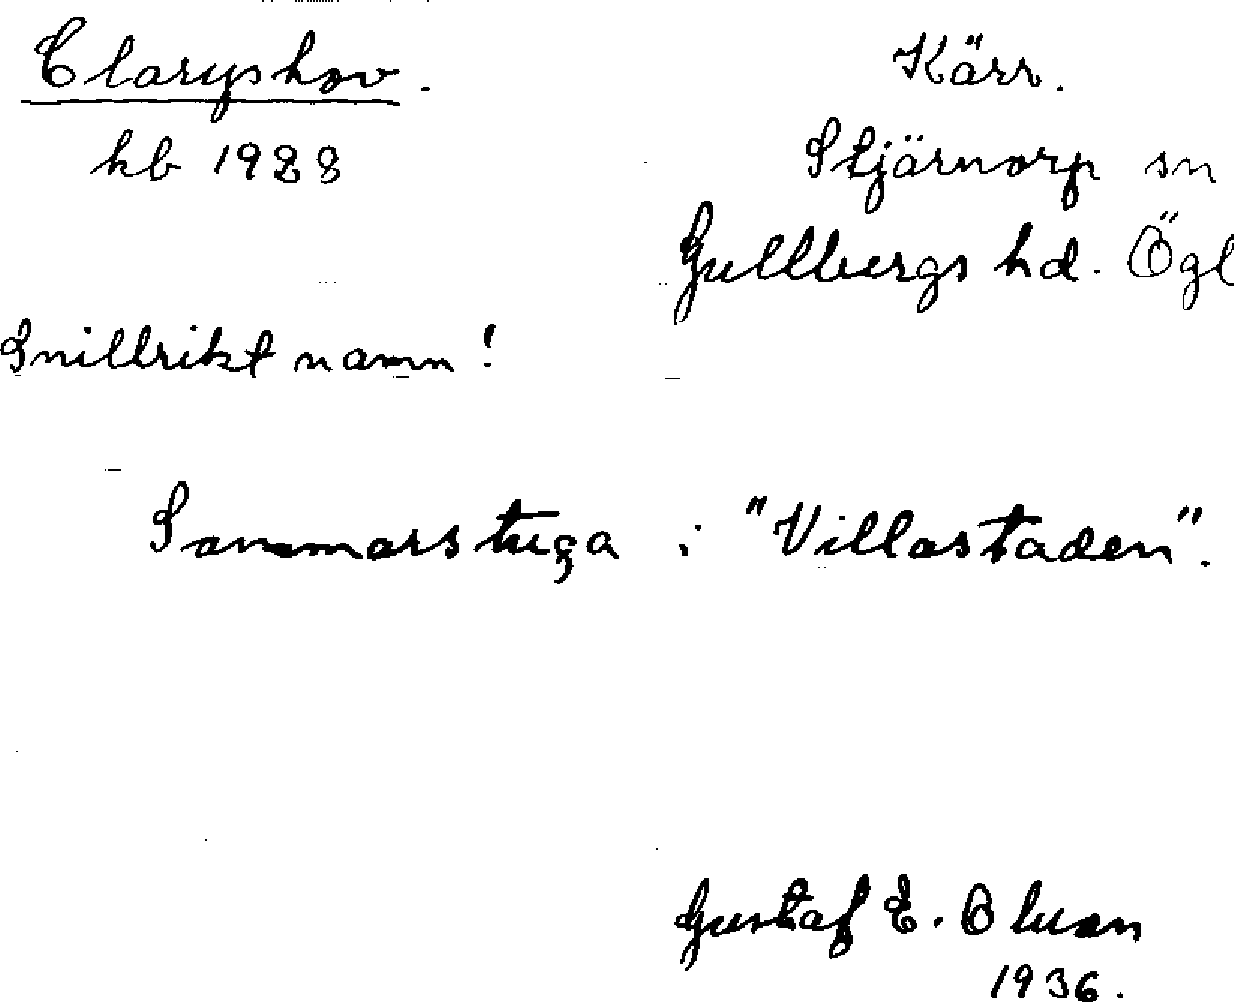 Claryshov.
kb 1928
Snillrikt namn!
Kärr.
Stjärnorp sn
Gullbergs hd. Ögl
Sommarstuga i "Villastaden".
Gustaf E. Olson
1936.